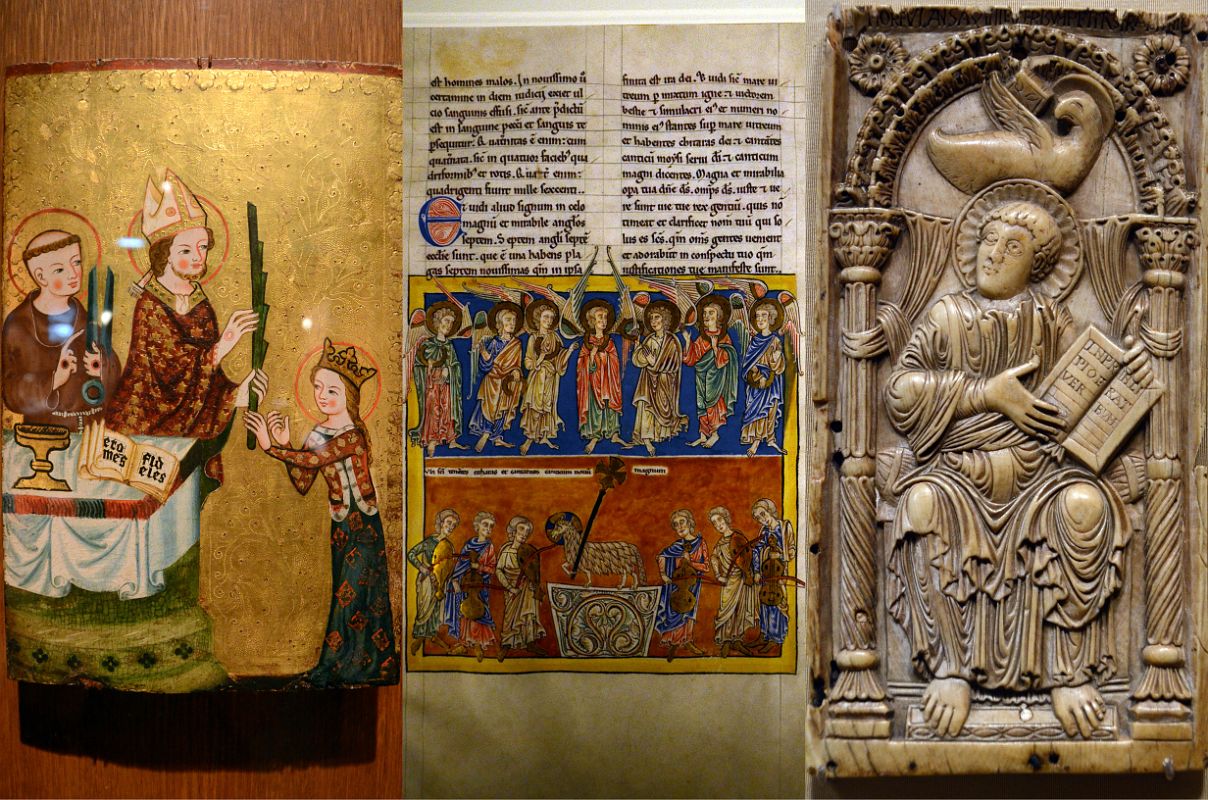 ero
mes
fid
eles
est homines malos. In nouissimo ū
certamine in diem iudicii exiet ul
cio sanguinis effusi. sic ante p̄dictū
est in sanguine et sanguis te
p̄sequitur. ē enim: cum
sic in quatuor facieb; qua
driformib; et rotis. ē enim:
quadrigenti fiunt mille sexcenti..
Et uidi aliud signum in celo
magnū et mirabile anglos
septem. Septem angli septē
ecclie sunt. que ē una habens pla
gas septem nouissimas qm̄ in ipsa
finita est ira dei. & uidi sic̄ mare ui
treum p mixtum igne & uictorem
bestie & simulacri ei' & numeri no
minis ei' stantes sup mare uitreum
et habentes citharas dei & cantātes
canticū moysi serui dī & canticum
magni dicentes. Magna et mirabilia
opa tua dn̄e ds̄. omp̄s ds̄. iuste & ue
re sunt uie tue rex gentiū. quis nō
timeat et clarificet nom̄ tuū qui so
lus es sc̄s. qm̄ om̄s gentes uenient
et adorabūt in conspectu tuo qm̄
iustificationes tue manifeste sunt..
magnum
ERAT
VER
BVM